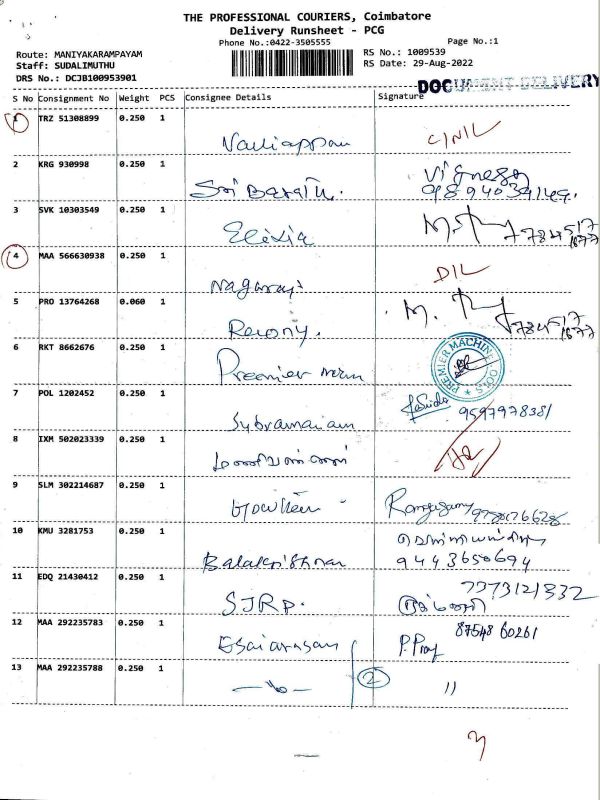 THE PROFESSIONAL COURIERS, Coimbatore
Delivery Runsheet - PCG
Phone No.:0422-3505555
Page No.:1
Route: MANIYAKARAMPAYAM
Staff: SUDALIMUTHU
DRS No.: DCJB100953901
RS No.: 1009539
RS Date: 29-Aug-2022
DOCUMENT DELIVERY
S No Consignment No Weight PCS Consignee Details Signature
1 TRZ 51308899 0.250 1
2 KRG 930998 0.250 1 Sri Barath.
3 SVK 10303549 0.250 1
4 MAA 566630938 0.250 1 Nagaraj. D/L
5 PRO 13764268 0.060 1
6 RKT 8662676 0.250 1 Premier PREMIER MACHINE TOOLS
7 POL 1202452 0.250 1 9597978381
8 IXM 502023339 0.250 1
9 SLM 302214687 0.250 1
10 KMU 3281753 0.250 1 Balakrishnan 9443650694
11 EDQ 21430412 0.250 1 SJRP. 7373121332
12 MAA 292235783 0.250 1 Esaiarasan 87548 60261
13 MAA 292235788 0.250 1 2 "
3